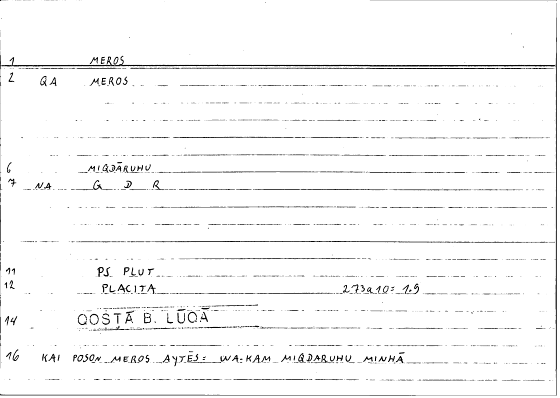 1 MEROS
2 QA MEROS
6 MIQDĀRUHU
7 NA Q D R
11 PS PLUT
12 PLACITA 273a10= 1.9
14 QOSṬĀ B. LŪQĀ
16 KAI POSON MEROS AYTĒS: WA-KAM MIQDARUHU MINHĀ